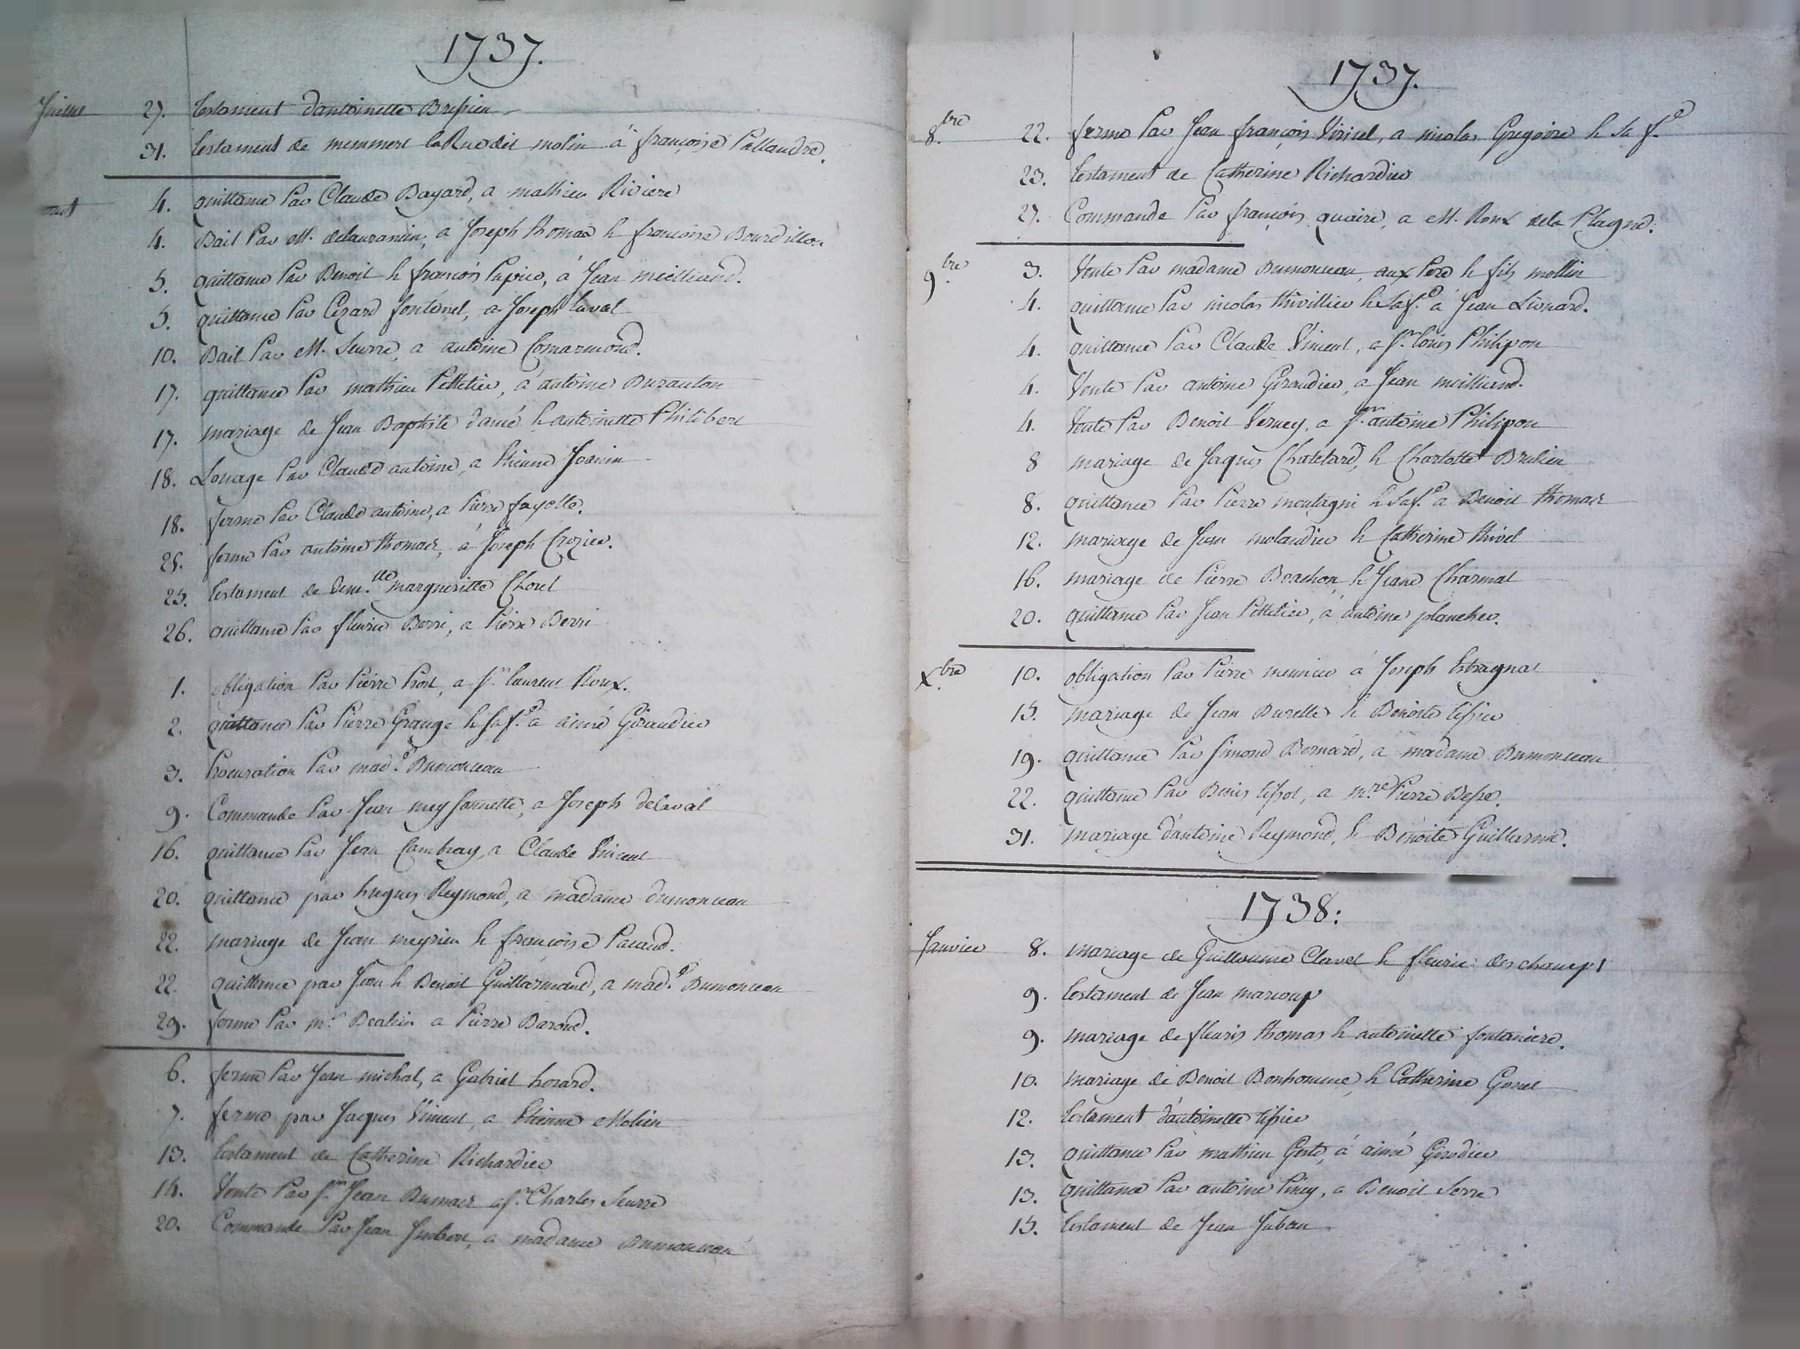 1737.
Juillet 27. testament d'antoinette Bressieu
31. testament de mr à françoise Pallandre.
4. quittance Par Claude Bayard, a mathieu Riviere
4. Bail Par M. delaurancin, a Joseph thomas & françoise Bourdillon
5. quittance Par Benoit & françois Papire, á Jean meilleand.
5. quittance Par Cezard fontanel, a Joseph Laval
10. Bail Par M. Seurre, a antoine Comarmond.
17. quittance Par mathieu Pelletier, a antoine Durauton
17. mariage de Jean Baptiste damé & antoinette Philibert
18. Louage Par Claude antoine, a Etienne Joanin
18. ferme Par Claude antoine, a Pierre fayolle.
25. ferme Par antoine thomas, á Joseph Crozier.
25. testament de Dem.lle margueritte Chorel
26. quittance Par fleurie Berri, a Pierre Berri
1. obligation Par Pierre Prost, a Sr Laurent Roux.
2. quittance Par Pierre Grange & Sa f.e a aimé Giraudier
3. Procuration Par mad.e Dumonceau
9. Commande Par Jean meyssonnette, a Joseph delaval
16. quittance Par Jean Cambray, a Claude Vincent
20. quittance par hugues Reymond, a madame dumonceau
22. mariage de Jean meyrieu & françoise Pacaud.
22. quittance par Jean & Benoit Guillarmand, a mad.e Dumonceau
29. ferme Par mr. a Pierre Baroud.
6. ferme Par Jean michal, a Gabriel horard.
7. ferme par Jacques Vincent, a Etienne Molien
13. testament de Catherine Richardier
14. Vente Par Sr. Jean Dumas a Sr. Charles Seurre
20. Commande Par Jean Imbert, a madame Dumonceau
1737.
8.bre 22. ferme Par Jean françois Viricel, a nicolas Gregoire & Sa f.e
23. testament de Catherine Richardier
27. Commande Par françois quaire, a M. Roux dela Plagne.
9.bre 3. Vente Par madame Dumonceau aux Pere & fils mollin
4. quittance Par nicolas thivillier & Sa f.e a Jean Lionard.
4. quittance Par Claude Vincent, a Sr. Louis Philipon
4. Vente Par antoine Giraudier, a Jean meilleand.
4. Vente Par Benoit Verney, a Sr. antoine Philipon
8 mariage de Jaques Chatelard, & Charlotte Brulier
8. quittance Par Pierre montagni & Sa f.e a Benoit thomas
12. mariage de Jean molaudier & Catherine thivel
16. mariage de Pierre Brachon, & Jeane Charmat
20. quittance Par Jean Pelletier, a antoine plancher.
X.bre 10. obligation Par Pierre meunier a Joseph Estragnat
15. mariage de Jean Burelle & Benoite tissier
19. quittance Par Simond Bernard, a madame Dumonceau
22. quittance Par Denis tissot, a m.re Pierre Besse.
31. mariage d'antoine Reymond, & Benoite Guillarme.
1738:
Janvier 8. mariage de Guillaume Clavel & fleurie deschamps
9. testament de Jean marcoup
9. mariage de fleuris thomas & antoinette fontaniere.
10. mariage de Benoit Bonhomme, & Catherine Gonel
12. testament d'antoinette tissier
13. quittance Par mathieu Geste, á aimé Girodier
13. quittance Par antoine Piney, a Benoit Serre
15. testament de Jean Juban